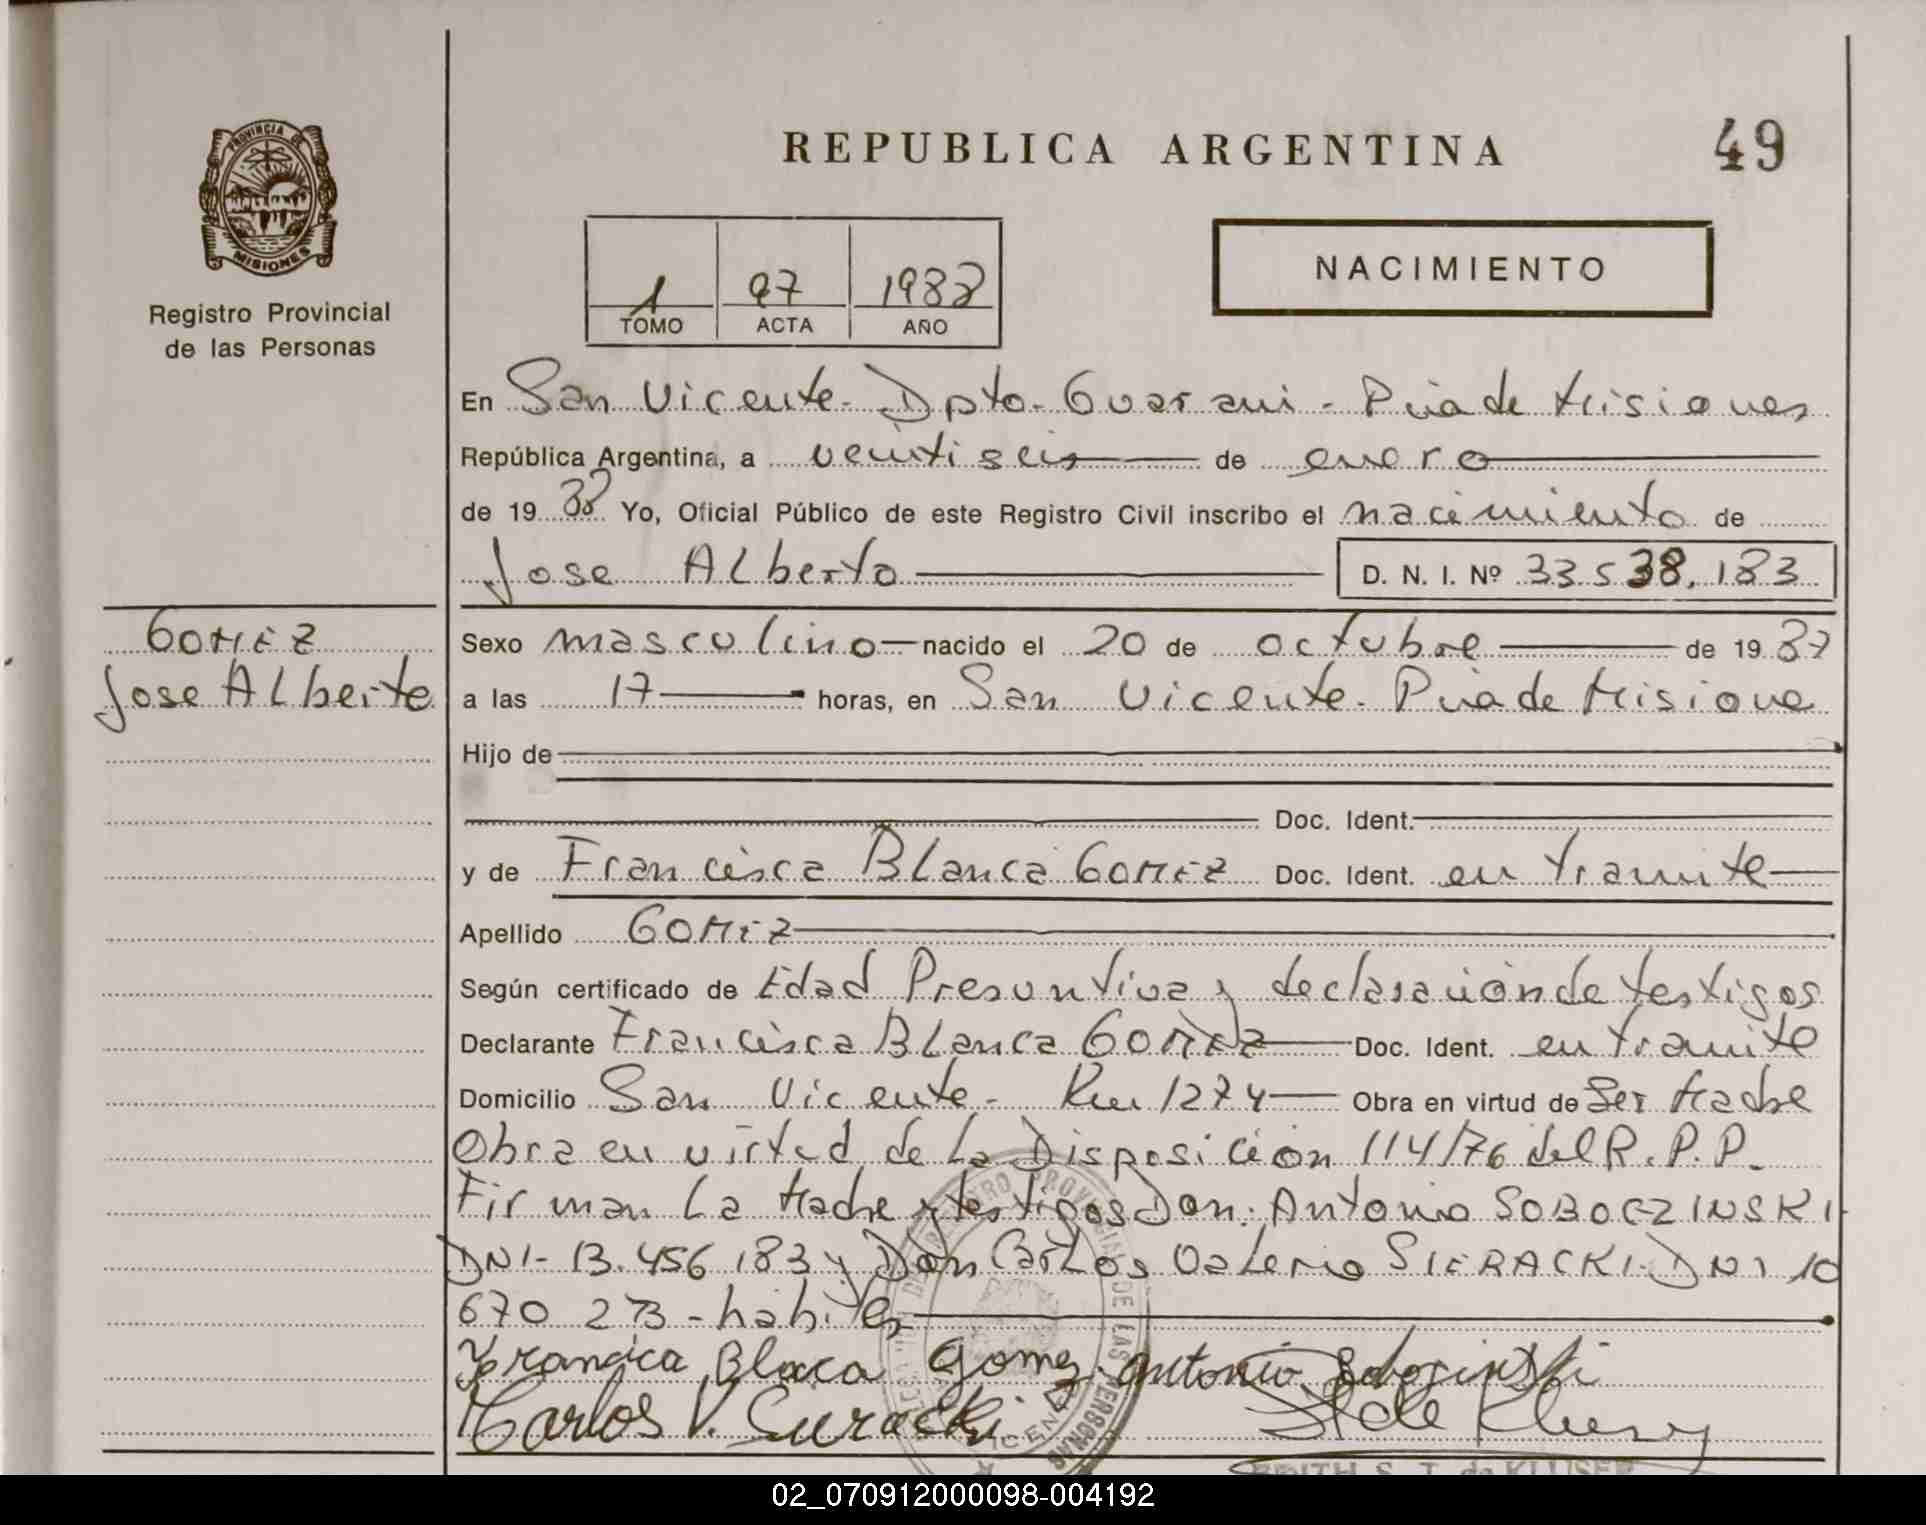 PROVINCIA DE
MISIONES
Registro Provincial
de las Personas
REPUBLICA ARGENTINA
49
1 97 1988
TOMO ACTA AÑO
NACIMIENTO
En San Vicente - Dpto - Guarani - Pcia de Misiones
República Argentina, a veintiseis de enero
de 19 88 Yo, Oficial Público de este Registro Civil inscribo el nacimiento de
Jose ALberto D. N. I. Nº 33538.183
GOMEZ
Jose ALberto
Sexo masculino nacido el 20 de octubre de 19 87
a las 17 horas, en San Vicente - Pcia de Misione
Hijo de
Doc. Ident.
y de Francisca BLanca GOMEZ Doc. Ident. en tramite
Apellido GOMEZ
Según certificado de Edad Presuntiva y declaración de testigos
Declarante Francisca BLanca GOMEZ Doc. Ident. en tramite
Domicilio San Vicente - Km 1274 Obra en virtud de Ser Madre
Obra en virtud de La Disposición 114/76 del R.P.P.
Firman La Madre y testigos Don: Antonio SOBOCZINSKI
DNI - 13.456 183 y Don CarLos VaLerio SIERACKI - DNI 10
670 273 - habiles
Francica Blaca Gomez Antonio
Carlos V. Sieracki
EDITH S. T. de KLUSER
02_070912000098-004192